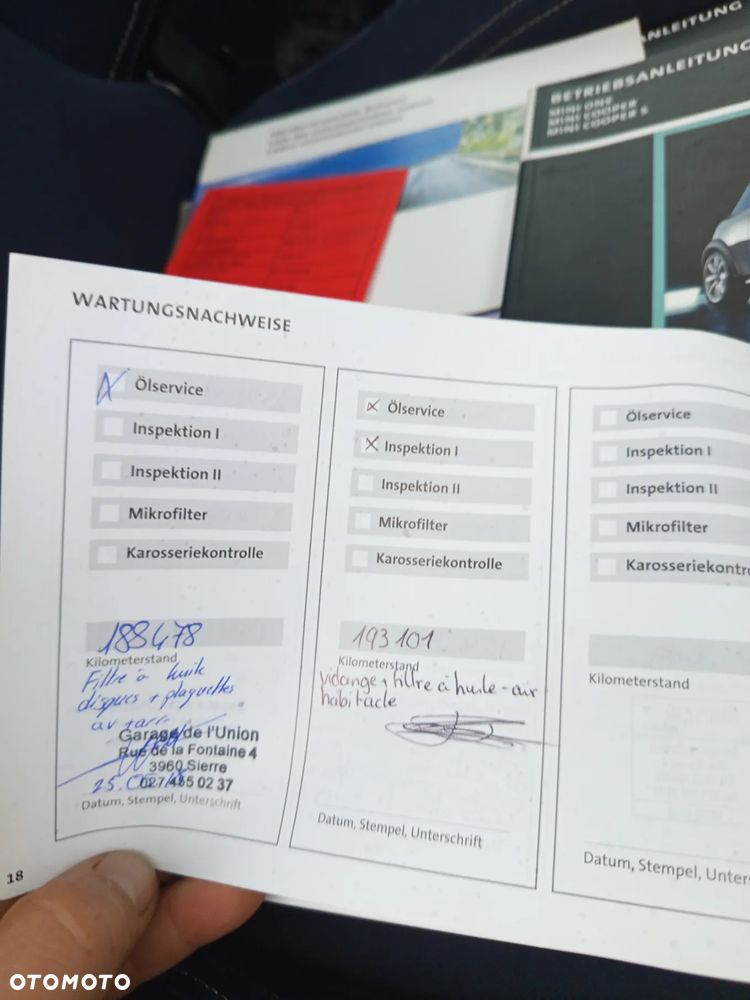 NLEITUNG
BETRIEBSANLEITUNG
MINI ONE
MINI COOPER
MINI COOPER S
WARTUNGSNACHWEISE
Ölservice
Inspektion I
Inspektion II
Mikrofilter
Karosseriekontrolle
188478
Kilometerstand
Filtre à huile
disques + plaquettes
av + arr
Garage de l'Union
Rue de la Fontaine 4
3960 Sierre
027/455 02 37
25.
Datum, Stempel, Unterschrift
Ölservice
Inspektion I
Inspektion II
Mikrofilter
Karosseriekontrolle
193101
Kilometerstand
vidange + filtre à huile - air
habitacle
Datum, Stempel, Unterschrift
Ölservice
Inspektion I
Inspektion II
Mikrofilter
Karosseriekontro
Kilometerstand
Datum, Stempel, Unter
18
OTOMOTO